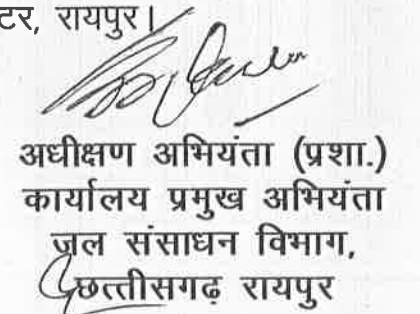 टर, रायपुर।
अधीक्षण अभियंता (प्रशा.)
कार्यालय प्रमुख अभियंता
जल संसाधन विभाग,
छत्तीसगढ़ रायपुर